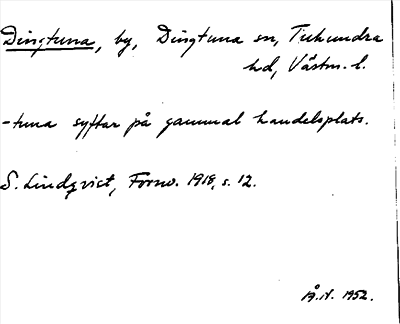 Dingtuna, by, Dingtuna sn, Tuhundra
hd, Västm. l.
-tuna syftar på gammal handelsplats.
S. Lindqvist, Fornv. 1918, s. 12.
1952.